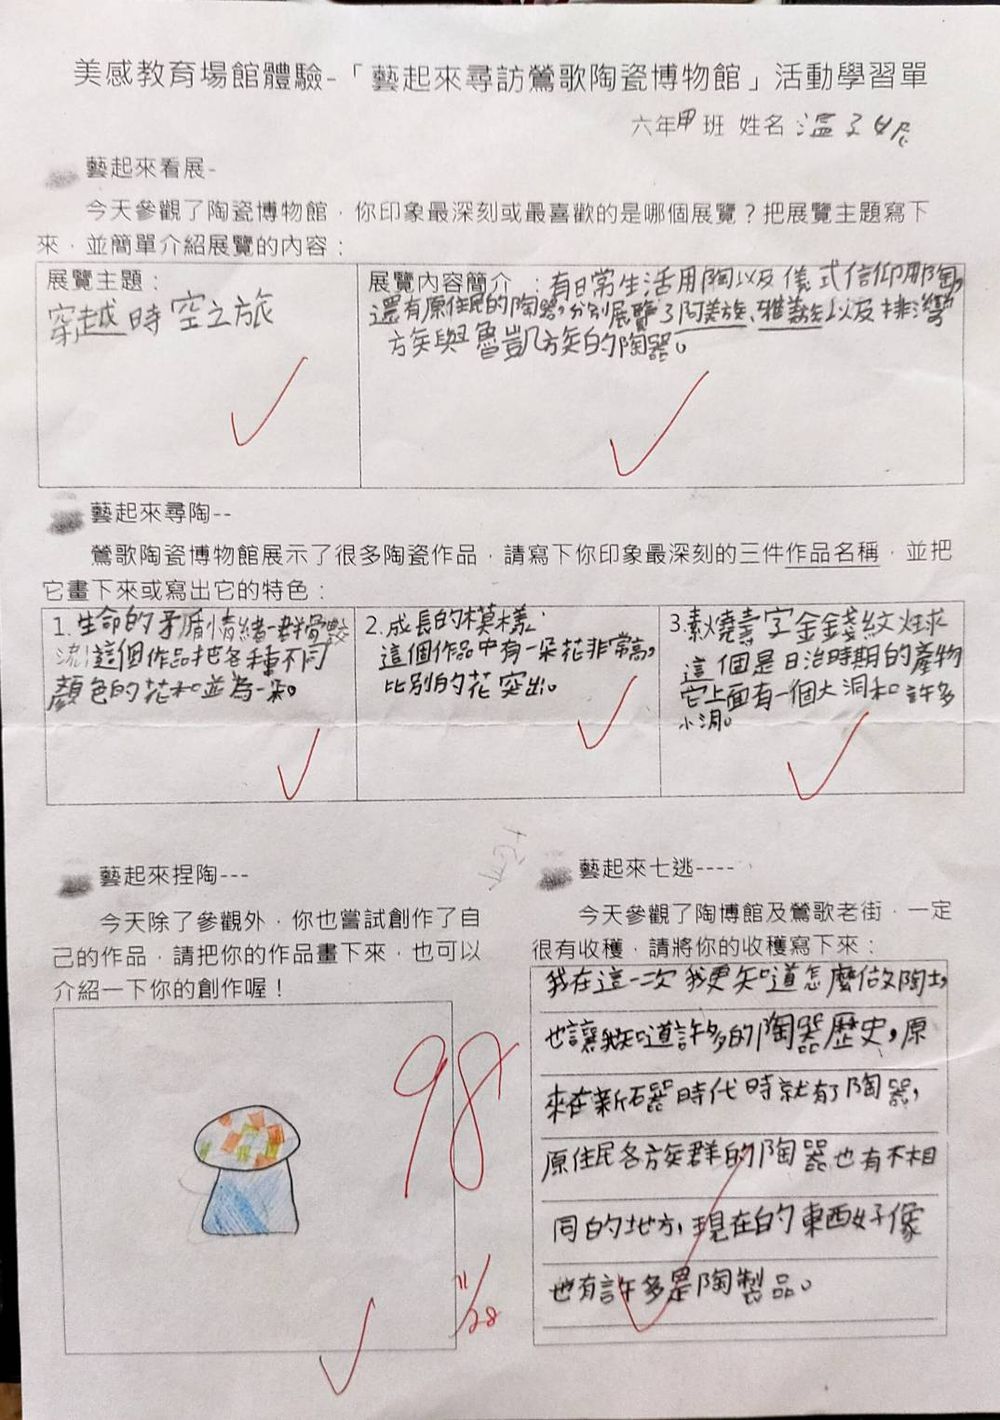 美感教育場館體驗-「藝起來尋訪鶯歌陶瓷博物館」活動學習單
六年甲班 姓名 溫子妮
藝起來看展-
今天參觀了陶瓷博物館，你印象最深刻或最喜歡的是哪個展覽？把展覽主題寫下
來，並簡單介紹展覽的內容：
展覽主題：
穿越時空之旅
展覽內容簡介：有日常生活用陶以及儀式信仰用陶，
還有原住民的陶器，分別展覽了阿美族、雅美族以及排灣
族與魯凱族的陶器。
藝起來尋陶--
鶯歌陶瓷博物館展示了很多陶瓷作品，請寫下你印象最深刻的三件作品名稱，並把
它畫下來或寫出它的特色：
1.生命的矛盾情緒-群骨
流：這個作品把各種不同
顏色的花和並為一朵。
2.成長的模樣：
這個作品中有一朵花非常高，
比別的花突出。
3.素燒壽字金錢紋烓球
這個是日治時期的產物
它上面有一個大洞和許多
小洞。
藝起來捏陶---
今天除了參觀外，你也嘗試創作了自
己的作品，請把你的作品畫下來，也可以
介紹一下你的創作喔！
98
11/28
藝起來七逃----
今天參觀了陶博館及鶯歌老街，一定
很有收穫，請將你的收穫寫下來：
我在這一次我更知道怎麼做陶土，
也讓我知道許多的陶器歷史，原
來在新石器時代時就有了陶器，
原住民各族群的陶器也有不相
同的地方，現在的東西好像
也有許多是陶製品。